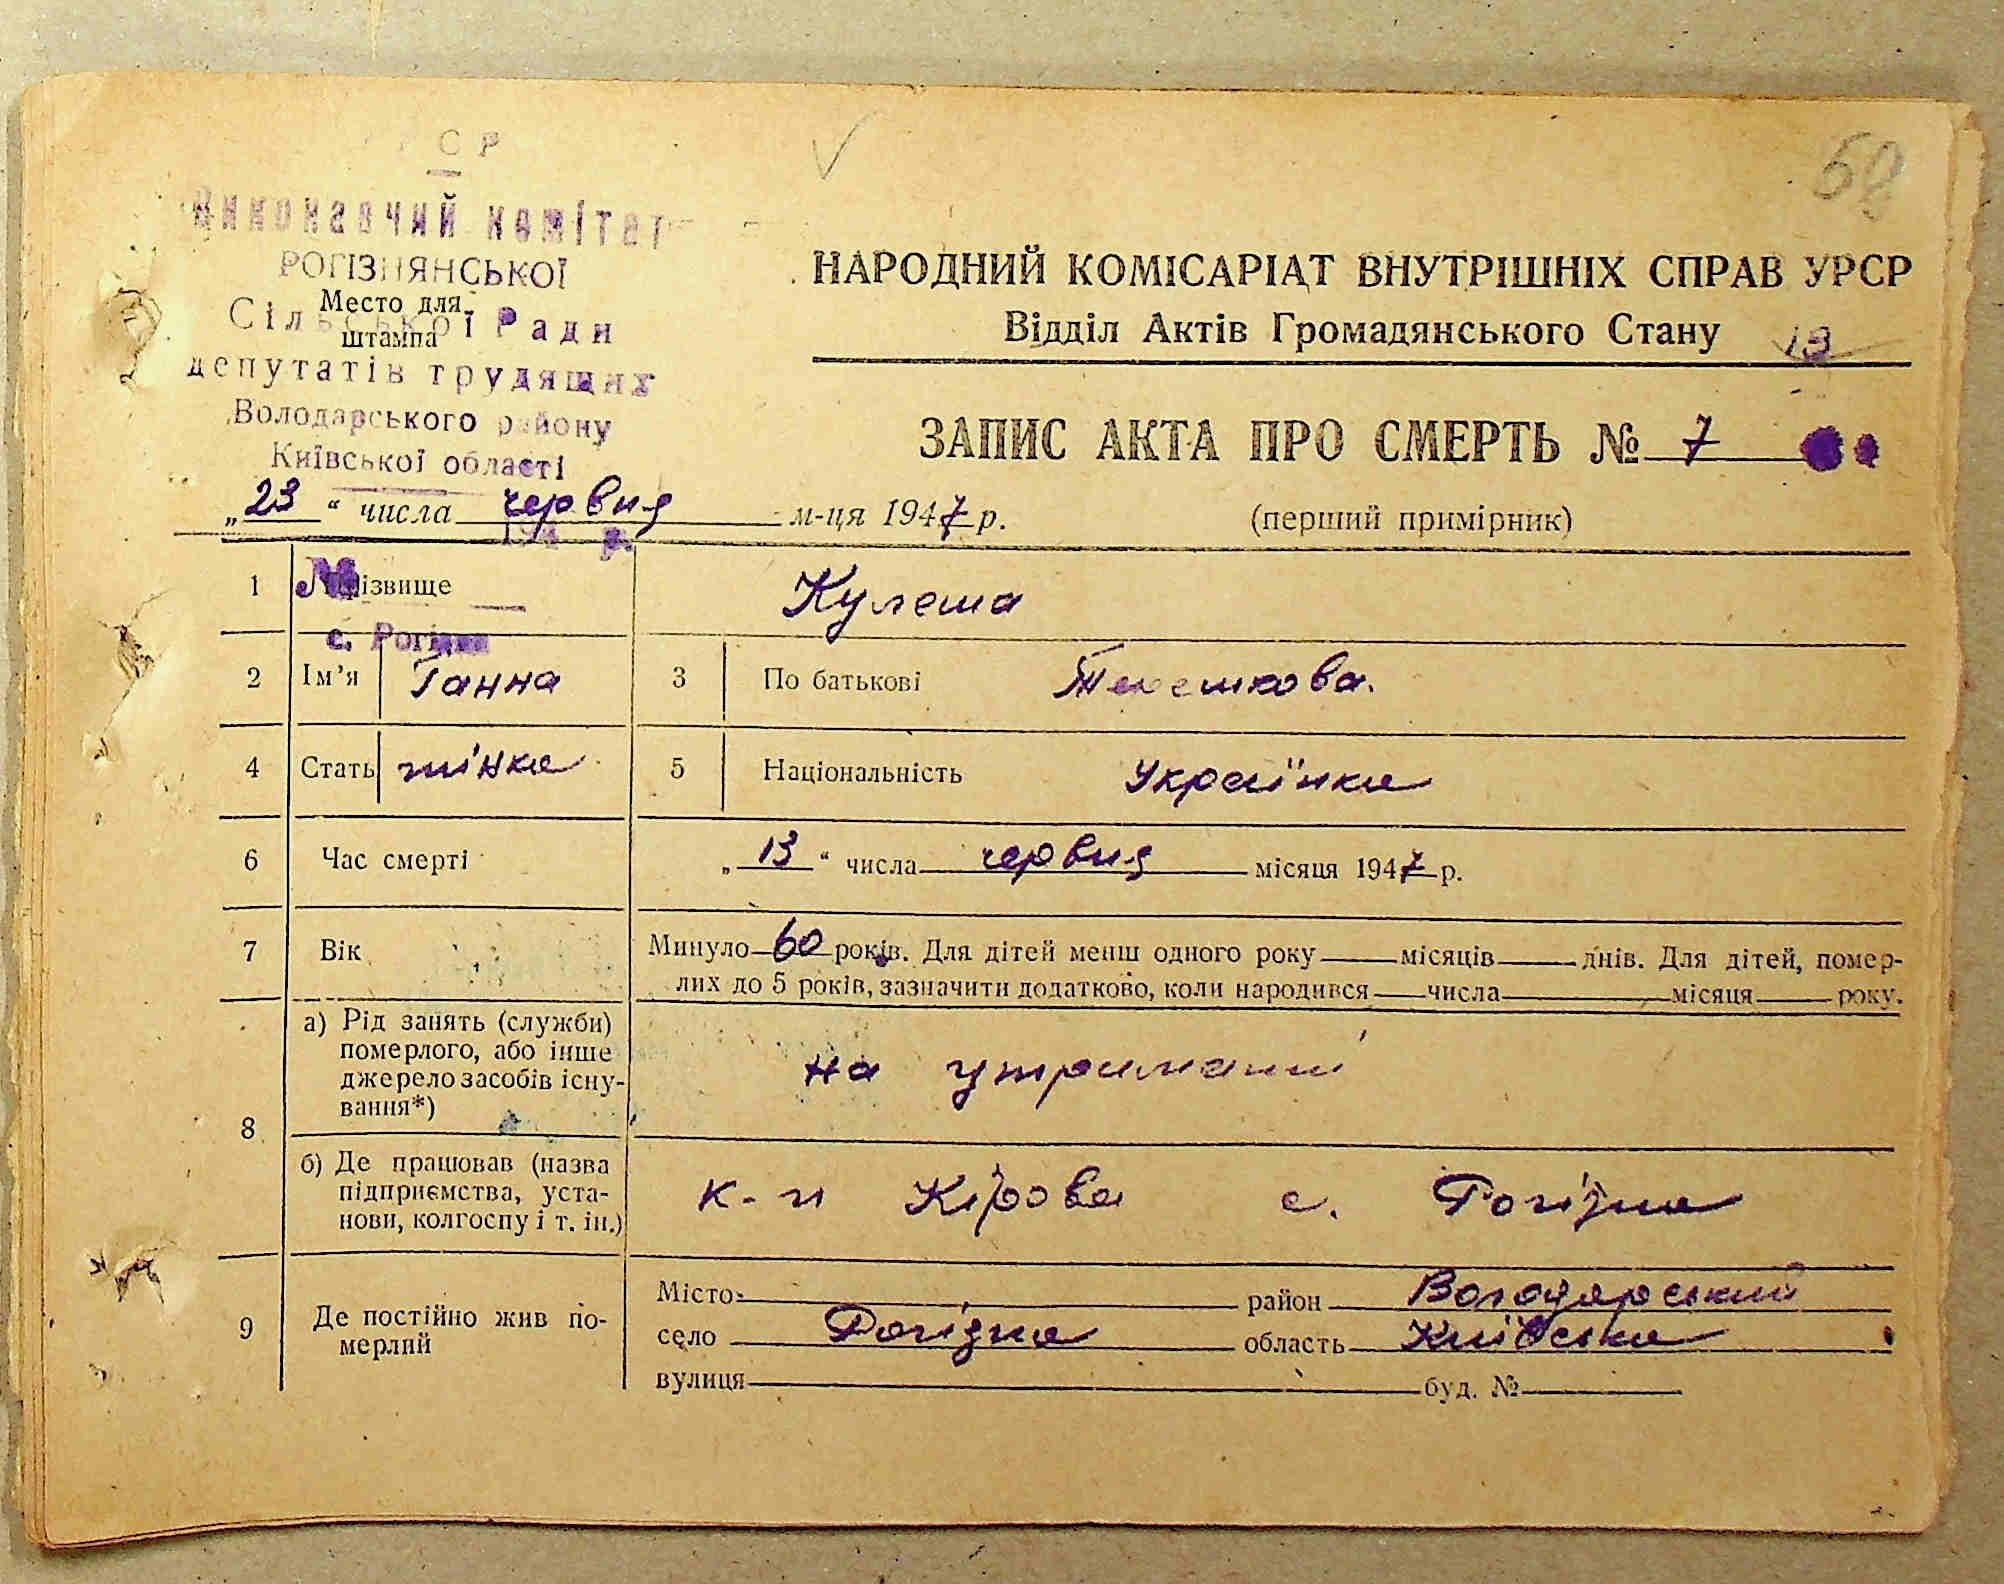 СР
58
Виконавчий комітет
РОГІЗНЯНСЬКОЇ
Сільської Ради
Место для
штампа
депутатів трудящих
Володарського району
Київської області
НАРОДНИЙ КОМІСАРІАТ ВНУТРІШНІХ СПРАВ УРСР
Відділ Актів Громадянського Стану 13
ЗАПИС АКТА ПРО СМЕРТЬ № 7
„23“ числа червня м-ця 1947 р.
(перший примірник)
1 Прізвище Кулеша
с. Рогізна
2 Ім’я Ганна 3 По батькові Терешкова.
4 Стать жінка 5 Національність Українка
6 Час смерті „13“ числа червня місяця 1947 р.
7 Вік Минуло 60 років. Для дітей менш одного року місяців днів. Для дітей, помер-
лих до 5 років, зазначити додатково, коли народився числа місяця року.
8 а) Рід занять (служби)
померлого, або інше
джерело засобів існу-
вання*)
на утриманні
б) Де працював (назва
підприємства, уста-
нови, колгоспу і т. ін.)
к-п Кірова с. Рогізна
9 Де постійно жив по-
мерлий
Місто район Володарський
село Рогізна область Київська
вулиця буд. №